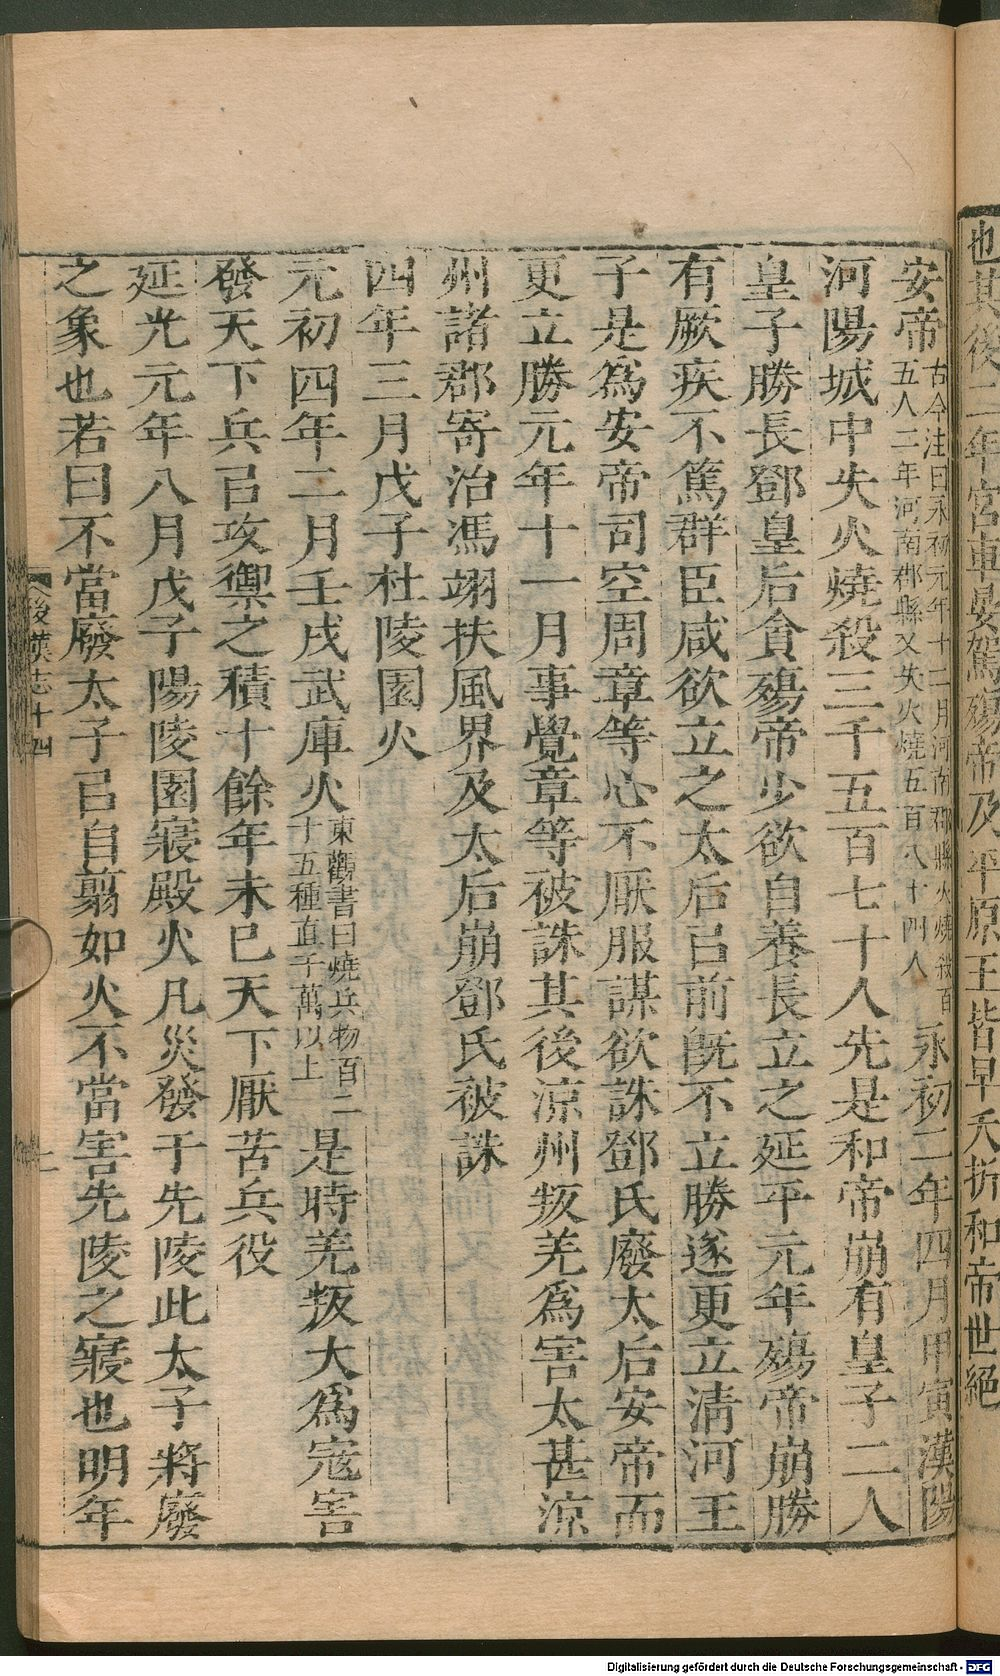 也其後二年宮車晏駕殤帝及平原王皆早夭折和帝世絕
安帝古今注曰永初元年十二月河南郡縣火燒殺百五人二年河南郡縣又失火燒五百八十四人永初二年四月甲寅漢陽
河陽城中失火燒殺三千五百七十人先是和帝崩有皇子二人
皇子勝長鄧皇后貪殤帝少欲自養長立之延平元年殤帝崩勝
有厥疾不篤群臣咸欲立之太后㠯前既不立勝遂更立清河王
子是為安帝司空周章等心不厭服謀欲誅鄧氏廢太后安帝而
更立勝元年十一月事覺章等被誅其後涼州叛羌為害太甚涼
州諸郡寄治馮翊扶風界及太后崩鄧氏被誅
四年三月戊子杜陵園火
元初四年二月壬戌武庫火東觀書曰燒兵物百二十五種直千萬以上是時羌叛大為寇害
發天下兵㠯攻禦之積十餘年未已天下厭苦兵役
延光元年八月戊子陽陵園寢殿火凡災發于先陵此太子將廢
之象也若曰不當廢太子㠯自翦如火不當害先陵之寢也明年
後漢志十四
Digitalisierung gefördert durch die Deutsche Forschungsgemeinschaft - DFG